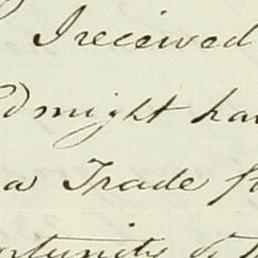 I received
might ha
a Trade f
ortunity